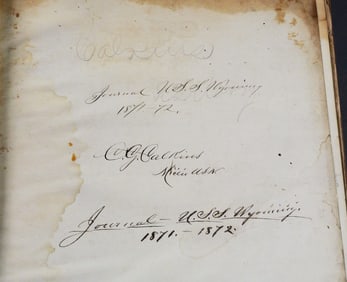 Calkins
Journal U.S.S. Wyoming
1871-72.
C.G. Calkins
USN
Journal - U.S.S. Wyoming.
1871. - 1872.